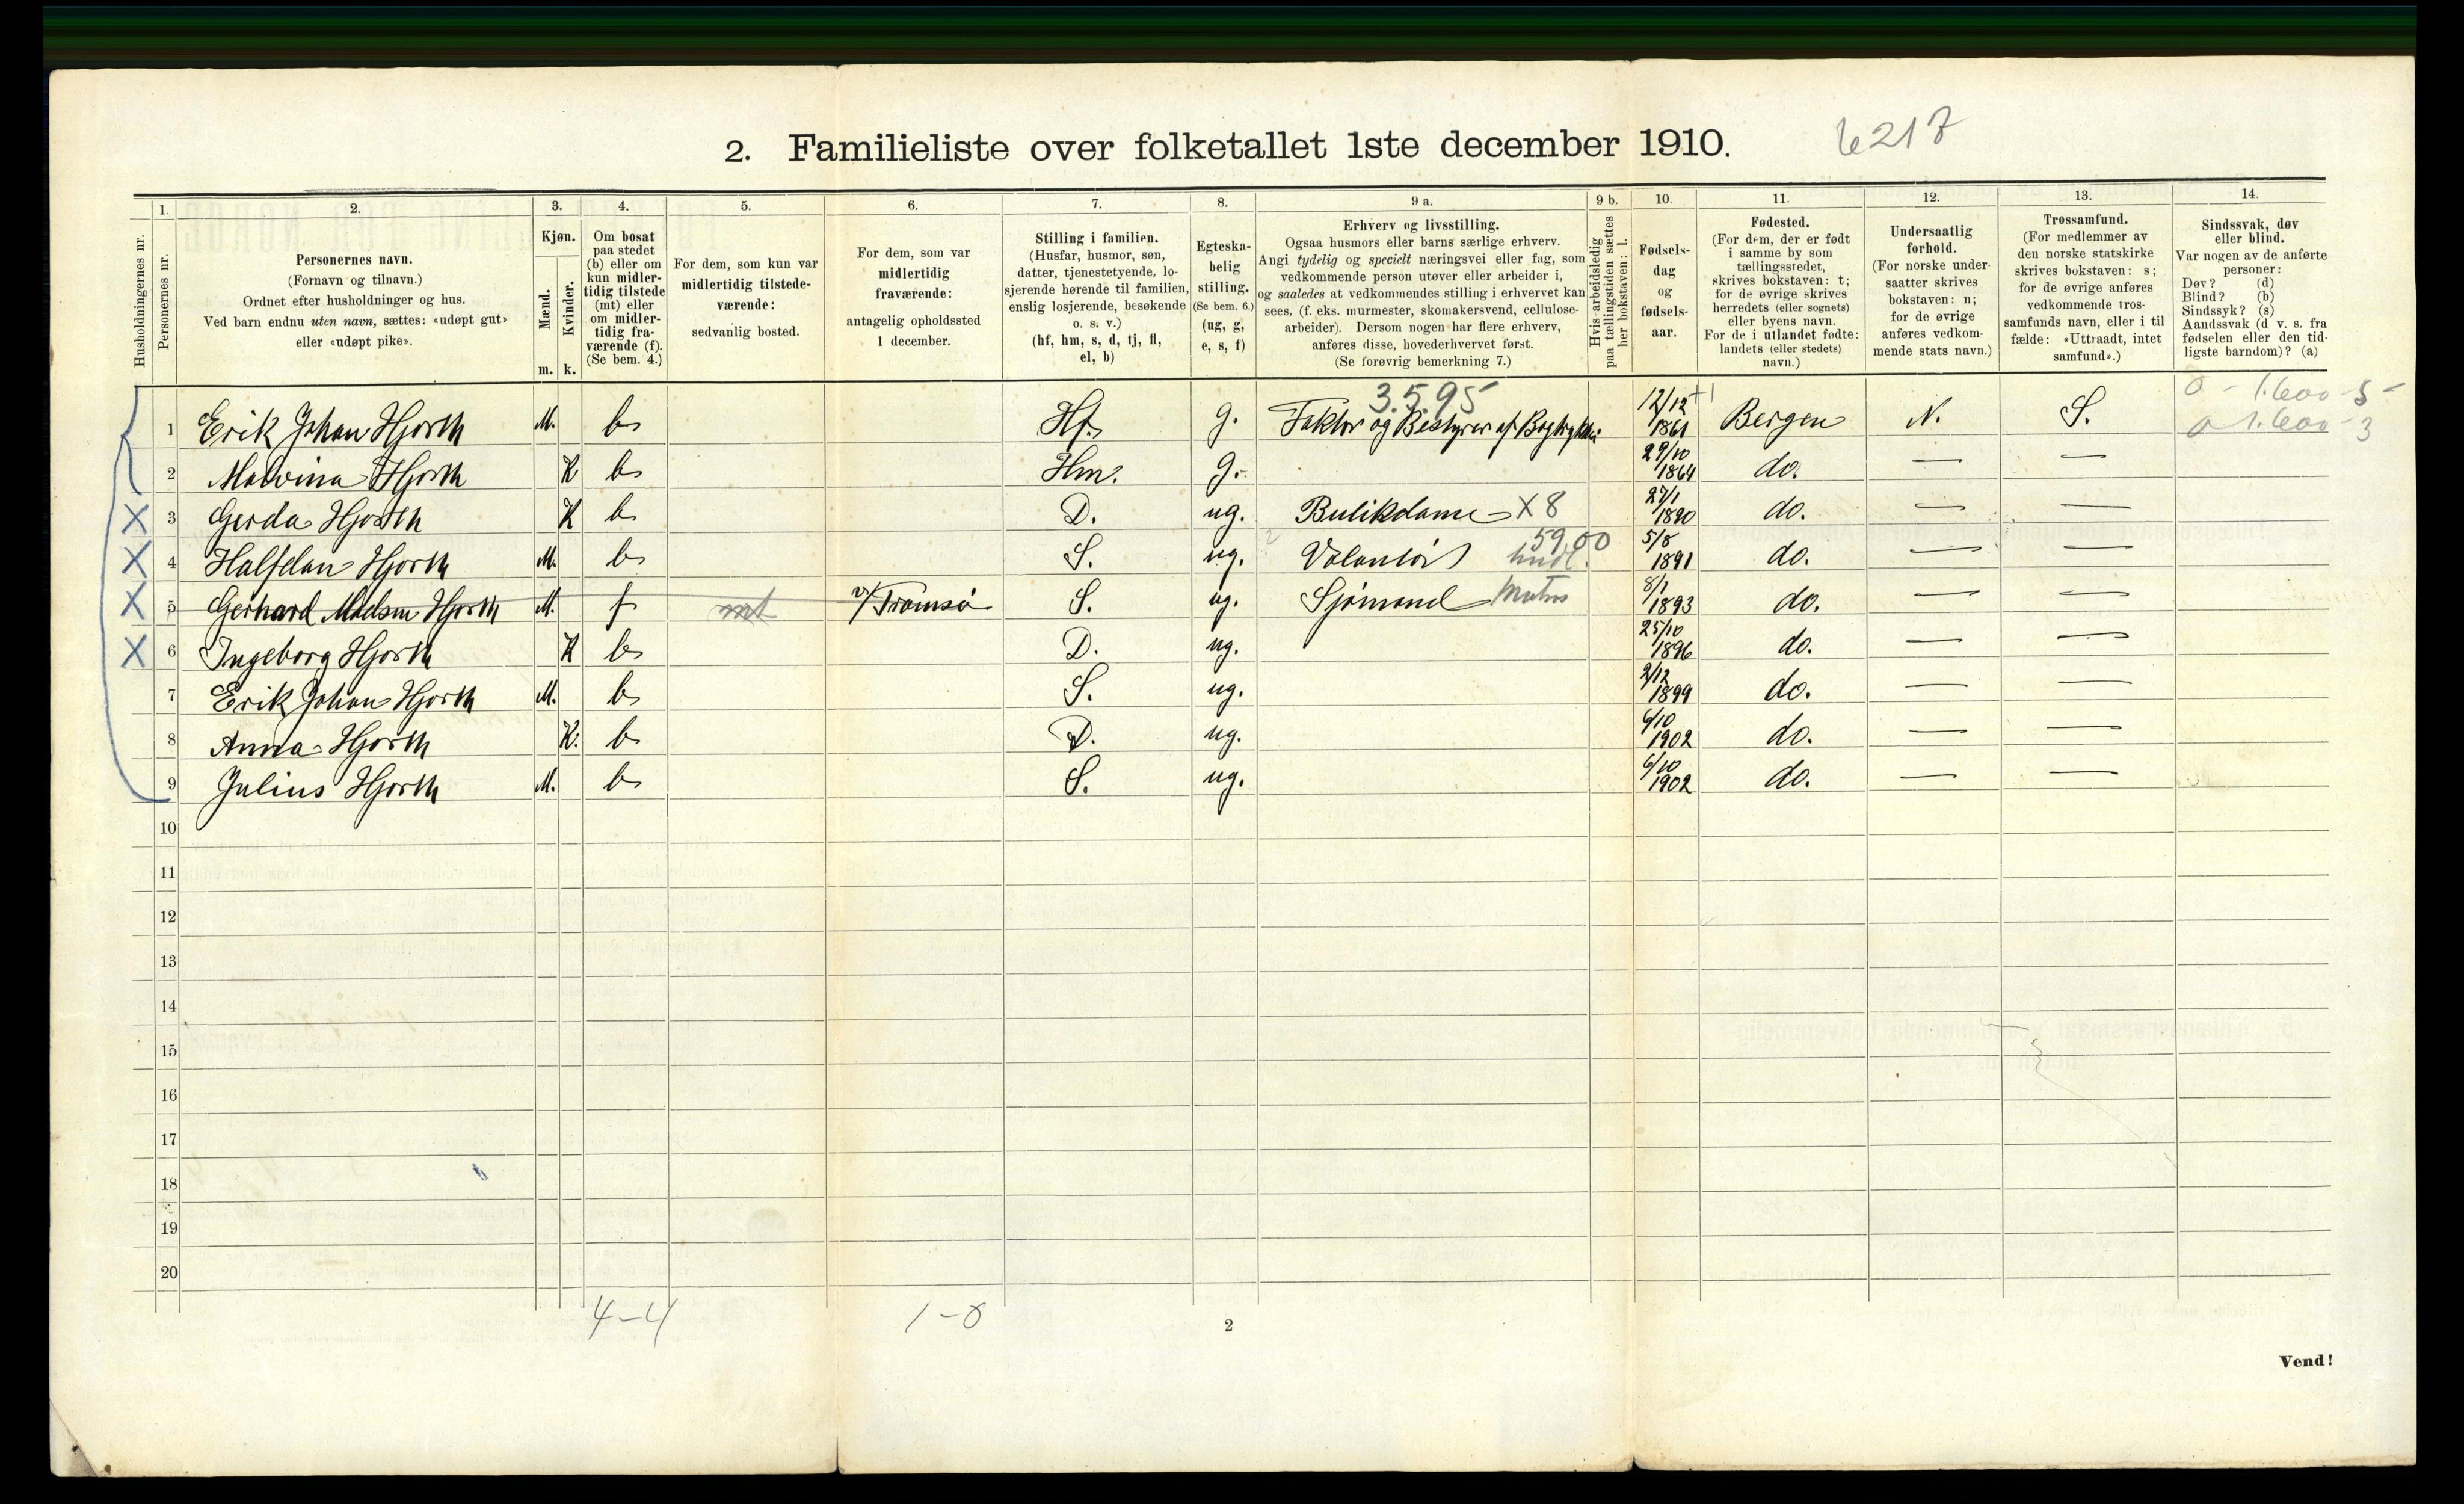 2. Familieliste over folketallet 1ste december 1910. 6217
1. 2. 3. 4. 5. 6. 7. 8. 9 a. 9 b. 10. 11. 12. 13. 14.
Husholdningernes nr.
Personernes nr.
Personernes navn.
(Fornavn og tilnavn.)
Ordnet efter husholdninger og hus.
Ved barn endnu uten navn, sættes: «udøpt gut»
eller «udøpt pike».
Kjøn.
Mænd.
Kvinder.
m. k.
Om bosat
paa stedet
(b) eller om
kun midler-
tidig tilstede
(mt) eller
om midler-
tidig fra-
værende (f).
(Se bem. 4.)
For dem, som kun var
midlertidig tilstede-
værende:
sedvanlig bosted.
For dem, som var
midlertidig
fraværende:
antagelig opholdssted
1 december.
Stilling i familien.
(Husfar, husmor, søn,
datter, tjenestetyende, lo-
sjerende hørende til familien,
enslig losjerende, besøkende
o. s. v.)
(hf, hm, s, d, tj, fl,
el, b)
Egteska-
belig
stilling.
(Se bem. 6.)
(ug, g,
e, s, f)
Erhverv og livsstilling.
Ogsaa husmors eller barns særlige erhverv.
Angi tydelig og specielt næringsvei eller fag, som
vedkommende person utøver eller arbeider i,
og saaledes at vedkommendes stilling i erhvervet kan
sees, (f. eks. murmester, skomakersvend, cellulose-
arbeider). Dersom nogen har flere erhverv,
anføres disse, hovederhvervet først.
(Se forøvrig bemerkning 7.)
Hvis arbeidsledig
paa tællingstiden sættes
her bokstaven: l.
Fødsels-
dag
og
fødsels-
aar.
Fødested.
(For dem, der er født
i samme by som
tællingsstedet,
skrives bokstaven: t;
for de øvrige skrives
herredets (eller sognets)
eller byens navn.
For de i utlandet fødte:
landets (eller stedets)
navn.)
Undersaatlig
forhold.
(For norske under-
saatter skrives
bokstaven: n;
for de øvrige
anføres vedkom-
mende stats navn.)
Trossamfund.
(For medlemmer av
den norske statskirke
skrives bokstaven: s;
for de øvrige anføres
vedkommende tros-
samfunds navn, eller i til
fælde: «Uttraadt, intet
samfund».)
Sindssvak, døv
eller blind.
Var nogen av de anførte
personer:
Døv? (d)
Blind? (b)
Sindssyk? (s)
Aandssvak (d v. s. fra
fødselen eller den tid-
ligste barndom)? (a)
3.5.95 0 - 1.600 - 5 -
1 Erik Johan Hjorth M. b Hf. g. Faktor og Bestyrer af Bogtrykkeri 12/12 1861 Bergen N. S. 0 1.600 - 3
2 Malvina Hjorth K b Hm. g. 29/10 1864 do. — —
X 3 Gerda Hjorth K b D. ug. Butikdame X 8 27/1 1890 do. — —
X 4 Halfdan Hjorth M. b S. ug. Volontör 59.00 handl. 5/8 1891 do. — —
X 5 Gerhard Madsen Hjorth M. f mt v/Tromsø S. ug. Sjømand Matros 8/1 1893 do. — —
X 6 Ingeborg Hjorth K b D. ug. 25/10 1896 do. — —
7 Erik Johan Hjorth M. b S. ug. 2/12 1899 do. — —
8 Anna Hjorth K. b D. ug. 6/10 1902 do. — —
9 Julius Hjorth M. b S. ug. 6/10 1902 do. — —
10
11
12
13
14
15
16
17
18
19
20
4-4 1-0
2
Vend!